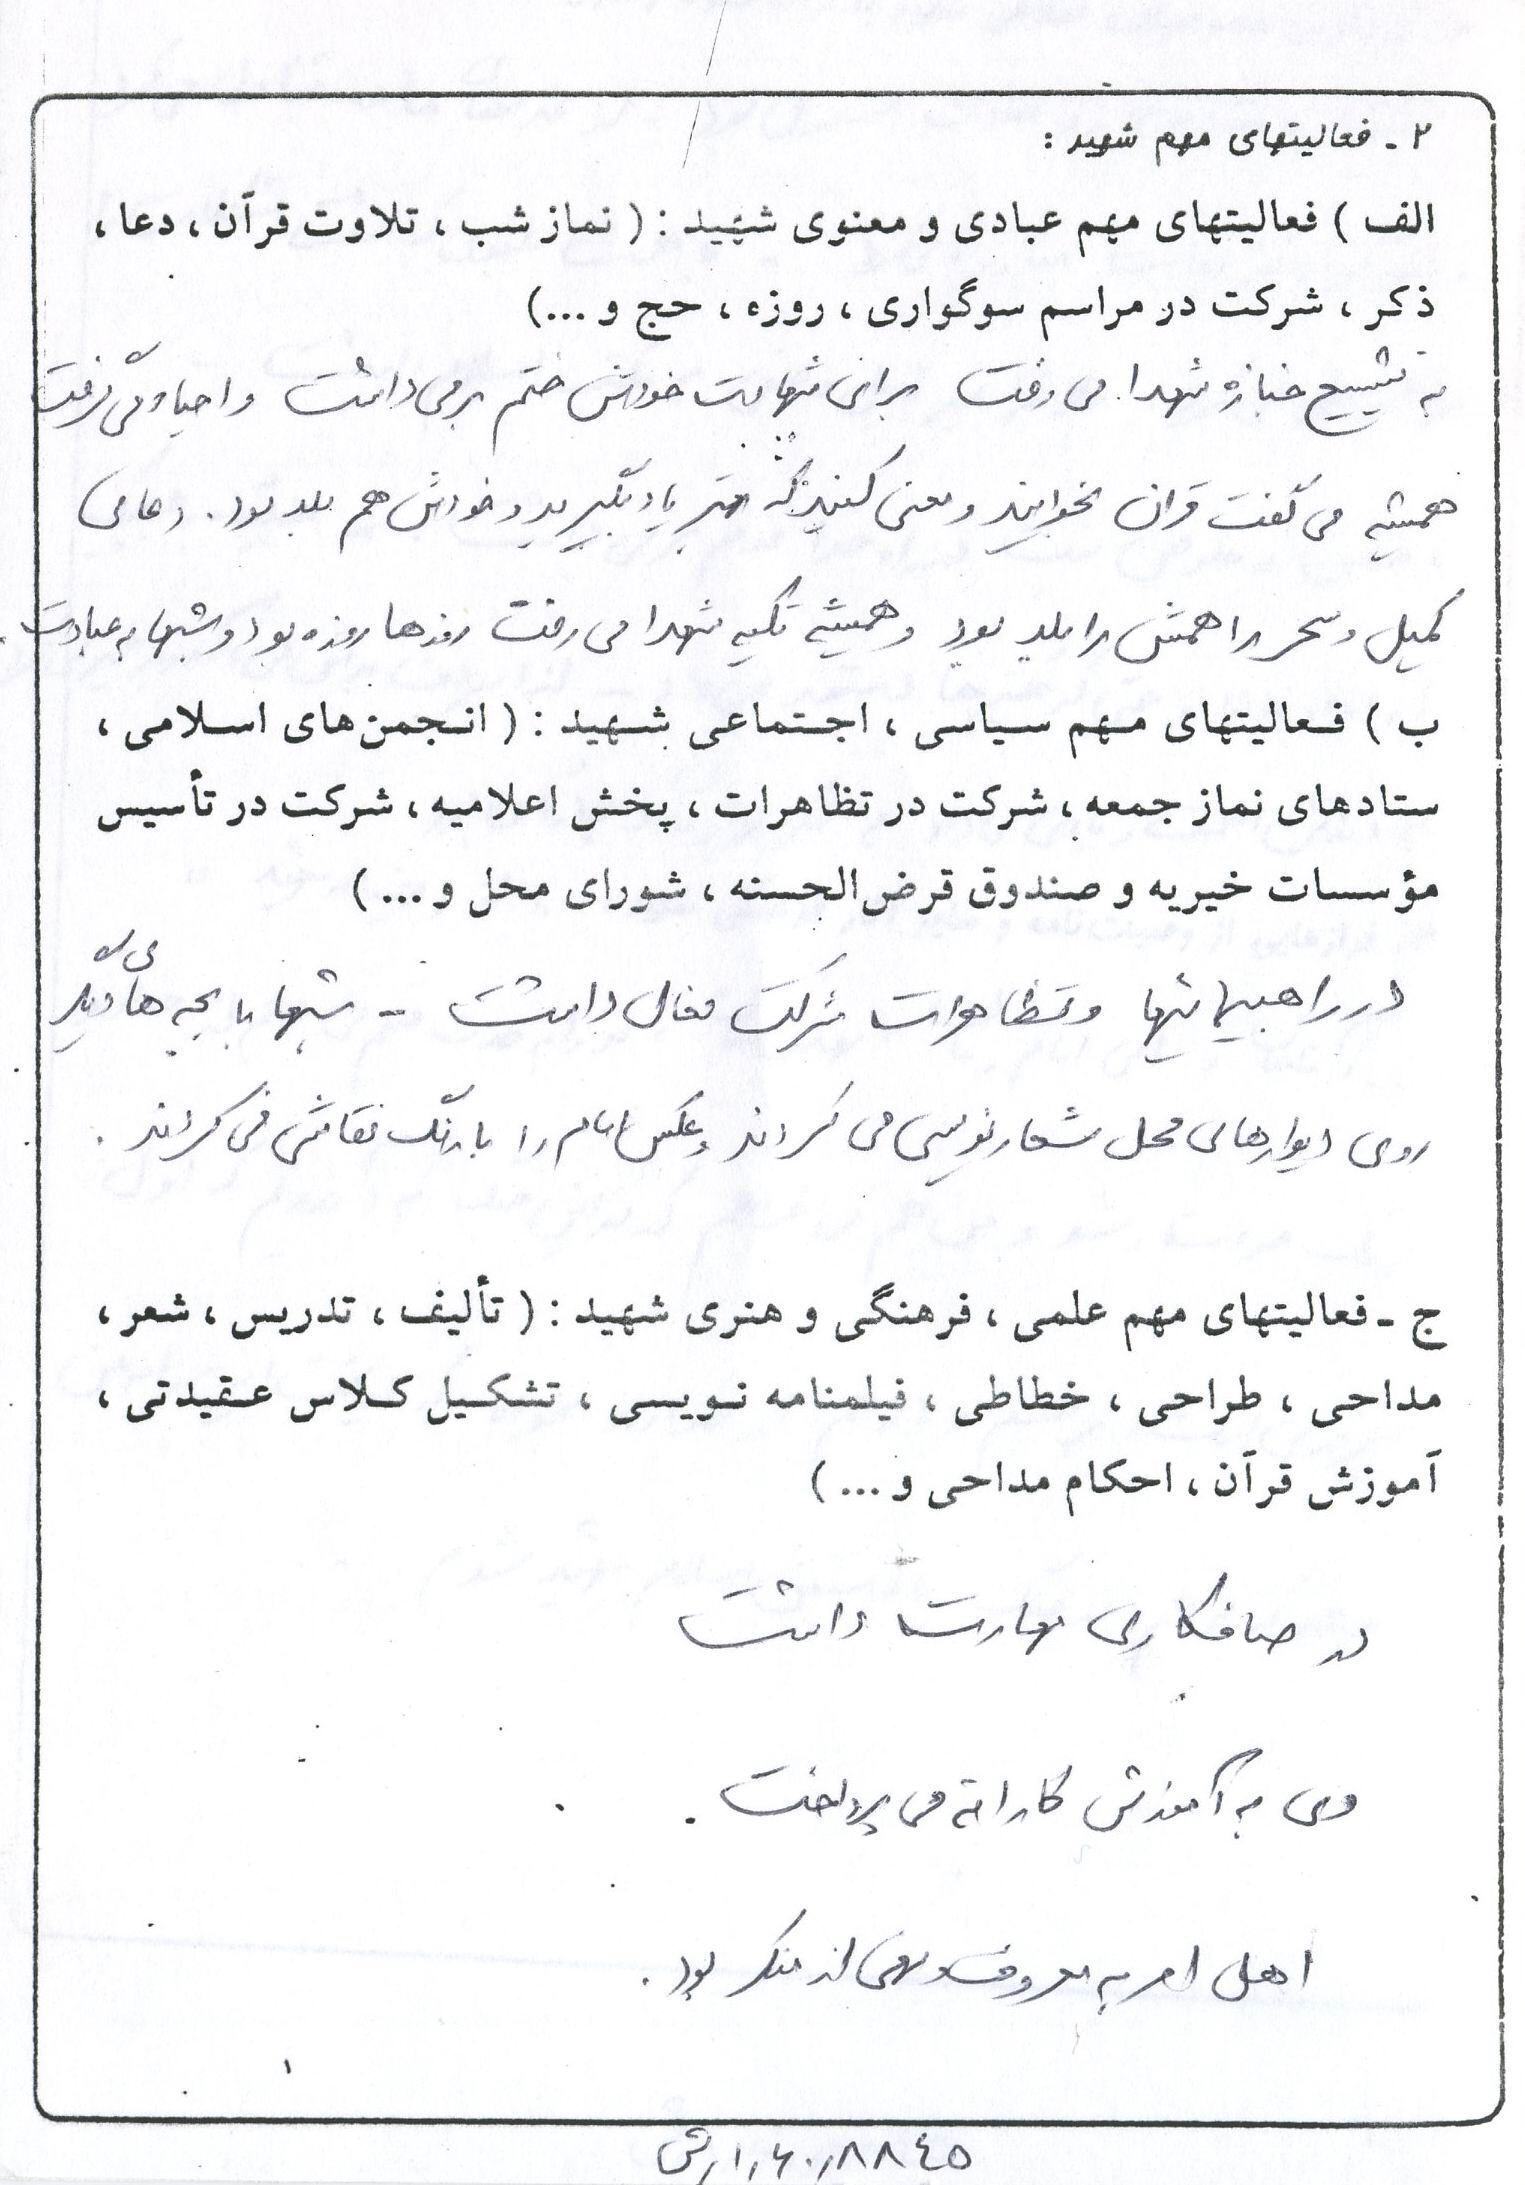 ۲ - فعالیتهای مهم شهید :
الف ) فعالیتهای مهم عبادی و معنوی شهید : ( نماز شب ، تلاوت قرآن ، دعا ،
ذکر ، شرکت در مراسم سوگواری ، روزه ، حج و ...)
به تشییع جنازه شهدا می رفت برای شهادت خودش ختم برمی داشت و احیاء می گرفت
همیشه می گفت قران بخوانید و معنی کنید که بهتر یاد بگیرید و خودش هم بلد بود . دعای
کمیل و سحر را همش را بلد بود و همیشه تکیه شهدا می رفت روزها روزه بود و شبها به عبادت .
ب ) فعالیتهای مهم سیاسی ، اجتماعی شهید : ( انجمن‌های اسلامی ،
ستادهای نماز جمعه ، شرکت در تظاهرات ، پخش اعلامیه ، شرکت در تأسیس
مؤسسات خیریه و صندوق قرض‌الحسنه ، شورای محل و ... )
در راهپیمائیها و تظاهرات شرکت فعال داشت - شبها با بچه های دیگر
روی دیوارهای محل شعار نویسی می کردند و عکس امام را با رنگ نقاشی می کردند .
ج - فعالیتهای مهم علمی ، فرهنگی و هنری شهید : ( تألیف ، تدریس ، شعر ،
مداحی ، طراحی ، خطاطی ، فیلمنامه نویسی ، تشکیل کلاس عقیدتی ،
آموزش قرآن ، احکام مداحی و ... )
در صافکاری مهارت داشت
وی به آموزش کاراته می پرداخت .
اهل امر به معروف و نهی از منکر بود .